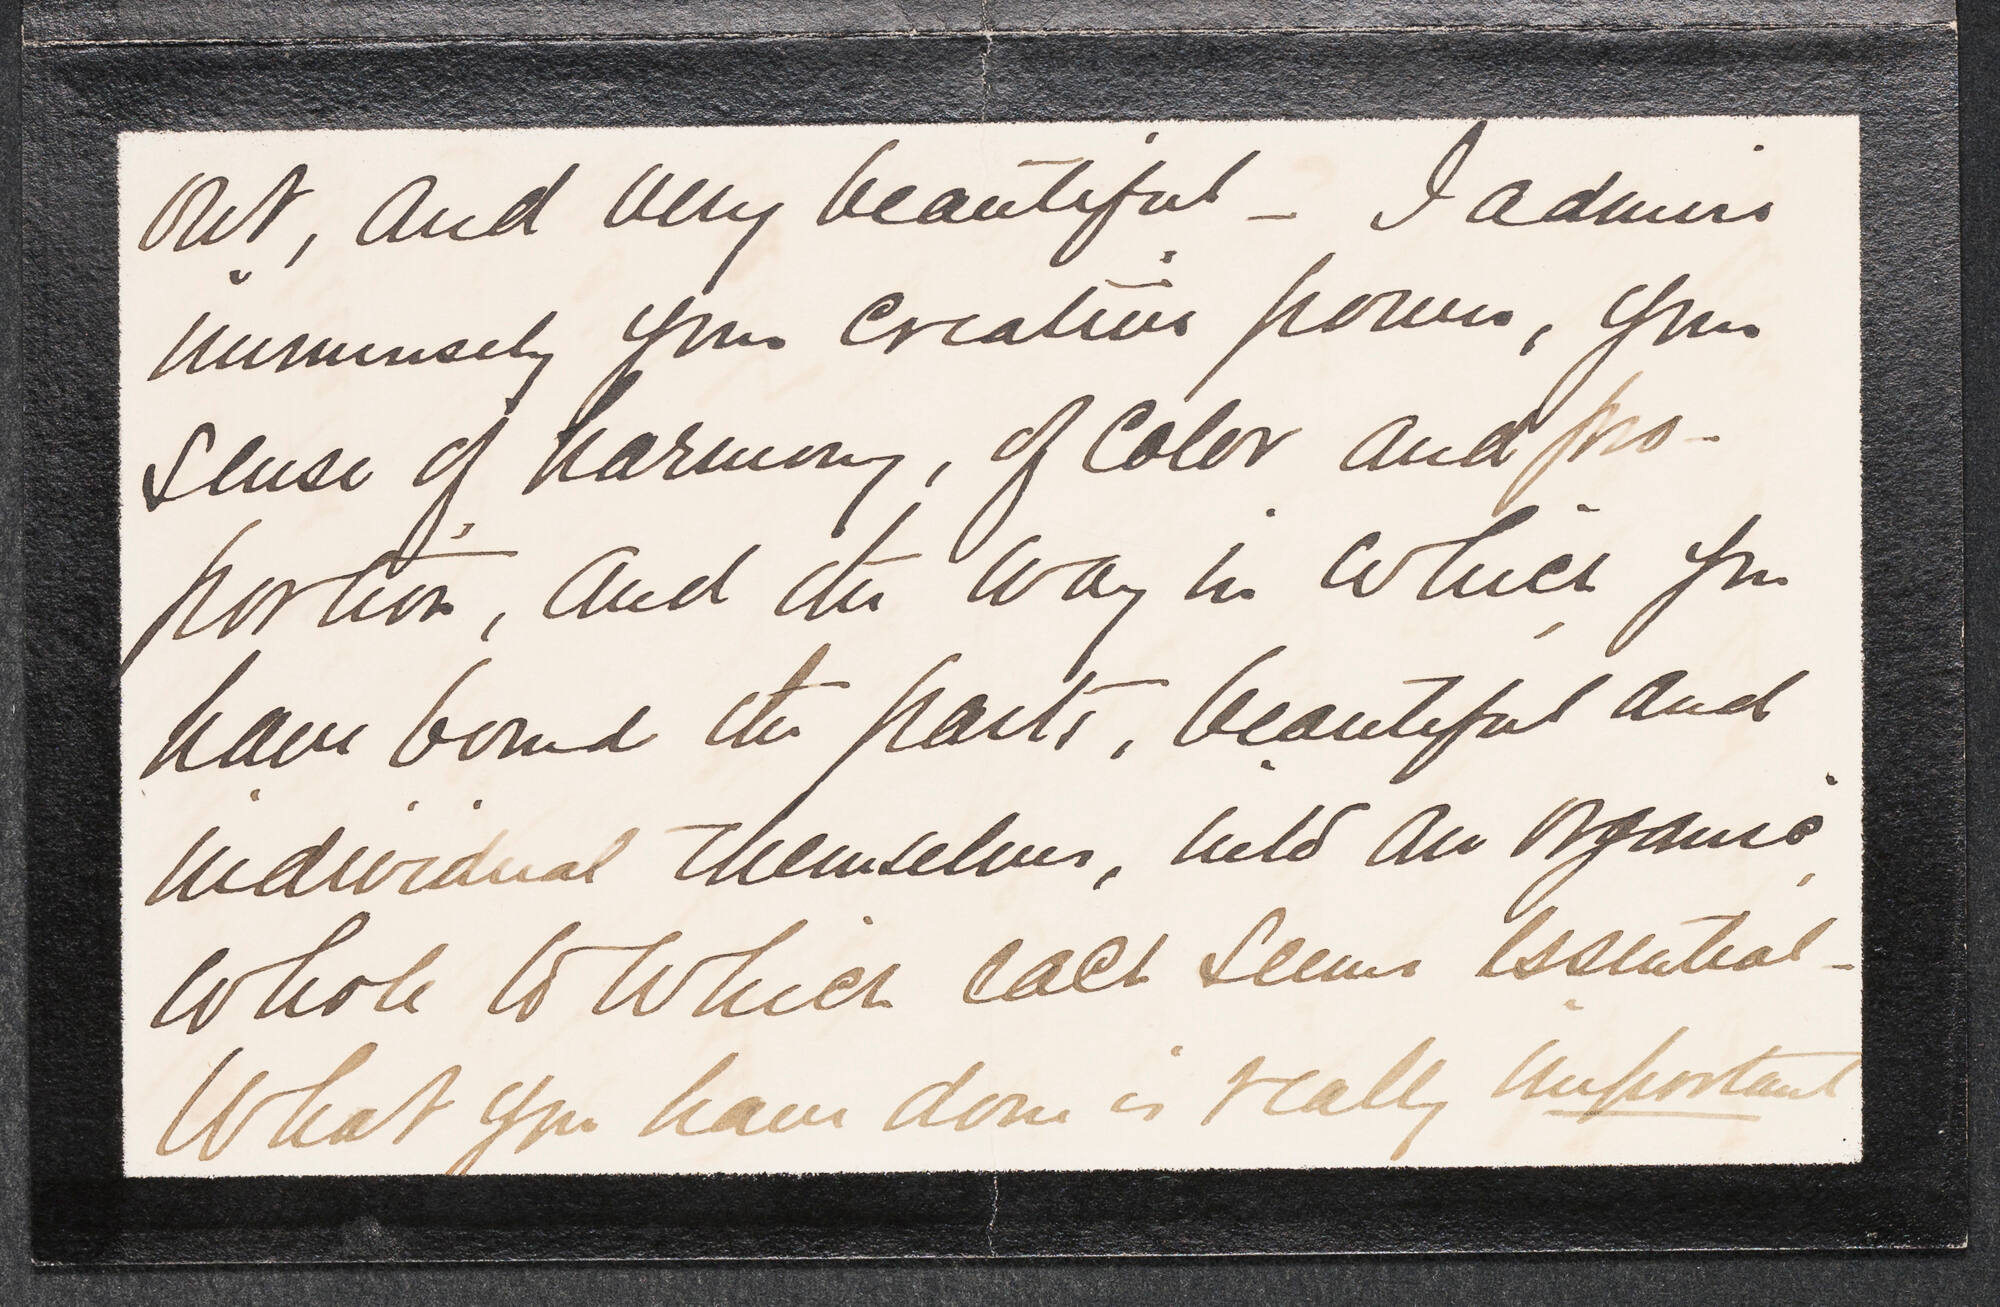 out, and very beautiful – I admire
immensely your creative power, your
sense of harmony, of color and pro-
portion, and the way in which you
have bound the parts, beautiful and
individual themselves, into an organic
whole to which each seems essential –
What you have done is really important